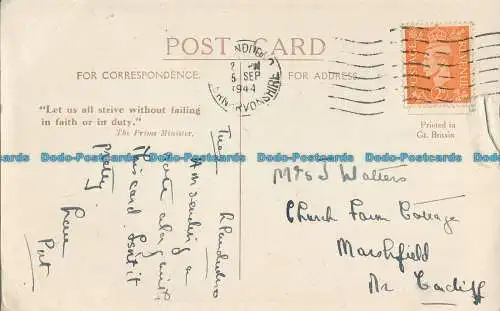 POST CARD
FOR CORRESPONDENCE.
FOR ADDRESS.
LLANDUDNO
5 SEP
1944
CAERNARVONSHIRE
"Let us all strive without failing
in faith or in duty."
The Prime Minister.
Printed in
Gt. Britain
Tues Llandudno
Am sending a
note along with
this card. Isn't it
pretty.
Love
Pat
Mrs J Walters
Church Farm Cottage
Marshfield
Nr Cardiff
Dodo-Postcards Dodo-Postcards Dodo-Postcards Dodo-Postcards Dodo-Postcards